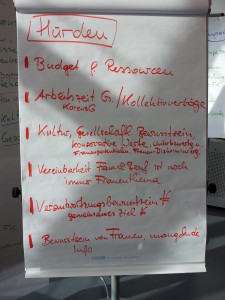 Hürden
Budget & Ressourcen
Arbeitszeit G. / Kollektivverträge
KarenzG
Kultur, Gesellschaftl. Bewusstsein
konservative Werte,
Vereinbarkeit Fam & Beruf ist noch
immer Frauenthema
Verantwortungsbewusstsein
gemeinsames Ziel
Bewusstsein von Frauen, mangelnde
Info